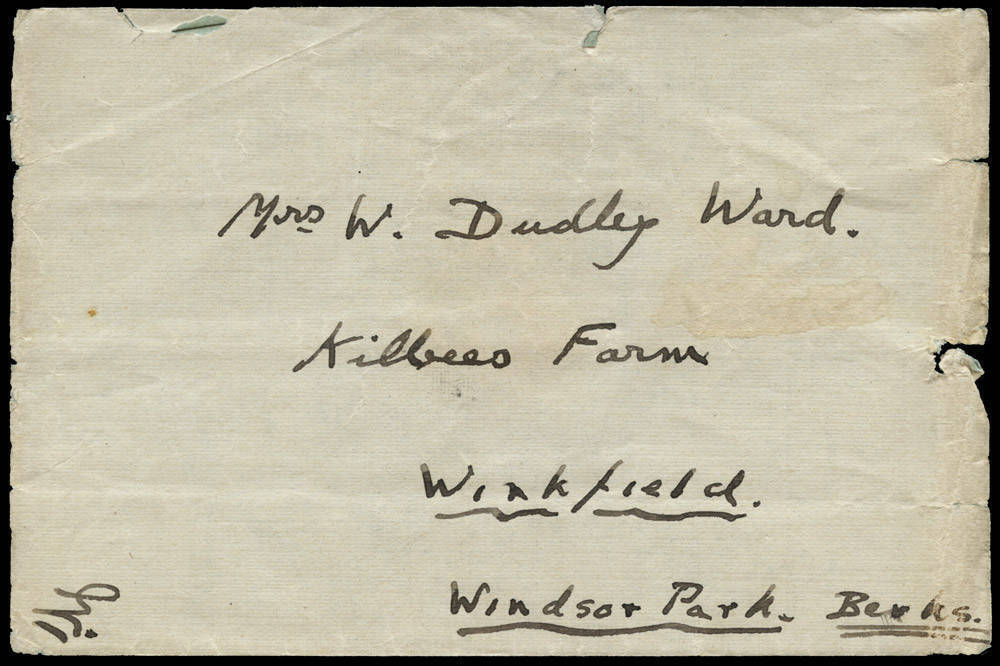 Mrs W. Dudley Ward.
Kilbees Farm
Winkfield.
Windsor Park. Berks.